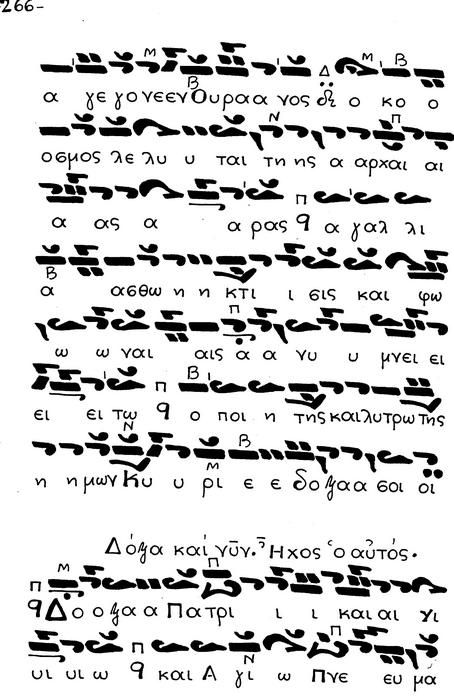 -266-
α γε γο νεεν Ουραα νος δι ο κο ο
οσμος λε λυ υ ται τη ης α αρχαι αι
α ας α α ρας q α γαλ λι
α ασθω η η κτι ι σις και φω
ω ω ναι αις α α νυ υ μνει ει
ει ει τω q ο ποι η της και λυτρω της
η η μων Κυ υ ρι ε ε δο ξαα σοι οι
Δόξα καί νῦν. Ἦχος ὁ αὐτός.
q Δο ο ξα α Πατρι ι ι και αι γι
υι υι ω q και Α γι ω Πνε ευ μα